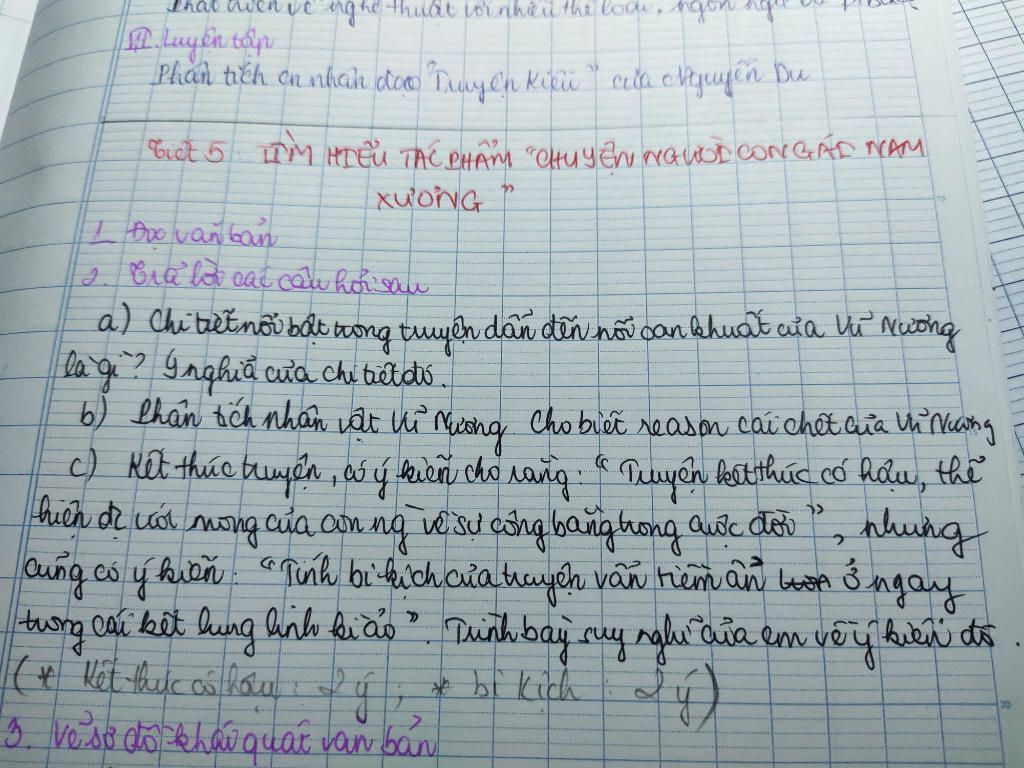 Phát triển về nghệ thuật với nhiều thể loại, ngôn ngữ
III. Luyện tập
Phân tích cn nhân đạo "Truyện Kiều" của Nguyễn Du
Tiết 5: TÌM HIỂU TÁC PHẨM "CHUYỆN NGƯỜI CON GÁI NAM
XƯƠNG"
1. Đọc văn bản
2. Trả lời các câu hỏi sau
a) Chi tiết nổi bật trong truyện dẫn đến nỗi oan khuất của Vũ Nương
là gì? Ý nghĩa của chi tiết đó.
b) Phân tích nhân vật Vũ Nương Cho biết reason cái chết của Vũ Nương
c) Kết thúc truyện, có ý kiến cho rằng: "Truyện kết thúc có hậu, thể
hiện đc ước mong của con ng về sự công bằng trong cuộc đời", nhưng
cũng có ý kiến: "Tính bi kịch của truyện vẫn tiềm ẩn ở ngay
trong cái kết lung linh kì ảo". Trình bày suy nghĩ của em về ý kiến đó.
(* Kết thúc có hậu: 2 ý; * bi kịch: 2 ý)
3. Vẽ sơ đồ khái quát văn bản